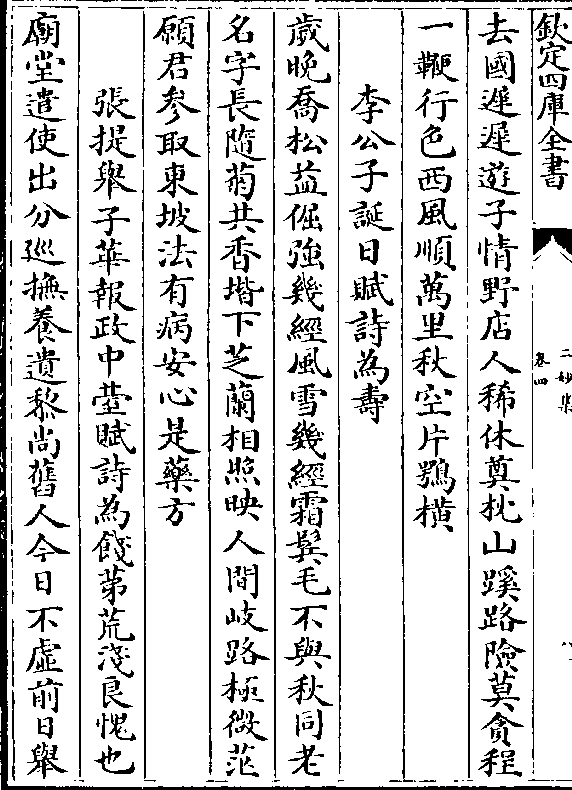 欽定四庫全書
二妙集
卷四
去國遲遲遊子情野店人稀休奠枕山蹊路險莫貪程
一鞭行色西風順萬里秋空片鶚橫
李公子誕日賦詩為壽
歲晚喬松益倔強幾經風雪幾經霜鬂毛不與秋同老
名字長隨菊共香堦下芝蘭相照映人間岐路極微茫
願君參取東坡法有病安心是藥方
張提舉子華報政中臺賦詩為餞苐荒淺良愧也
廟堂遣使出分巡撫養遺黎尚舊人今日不虛前日舉